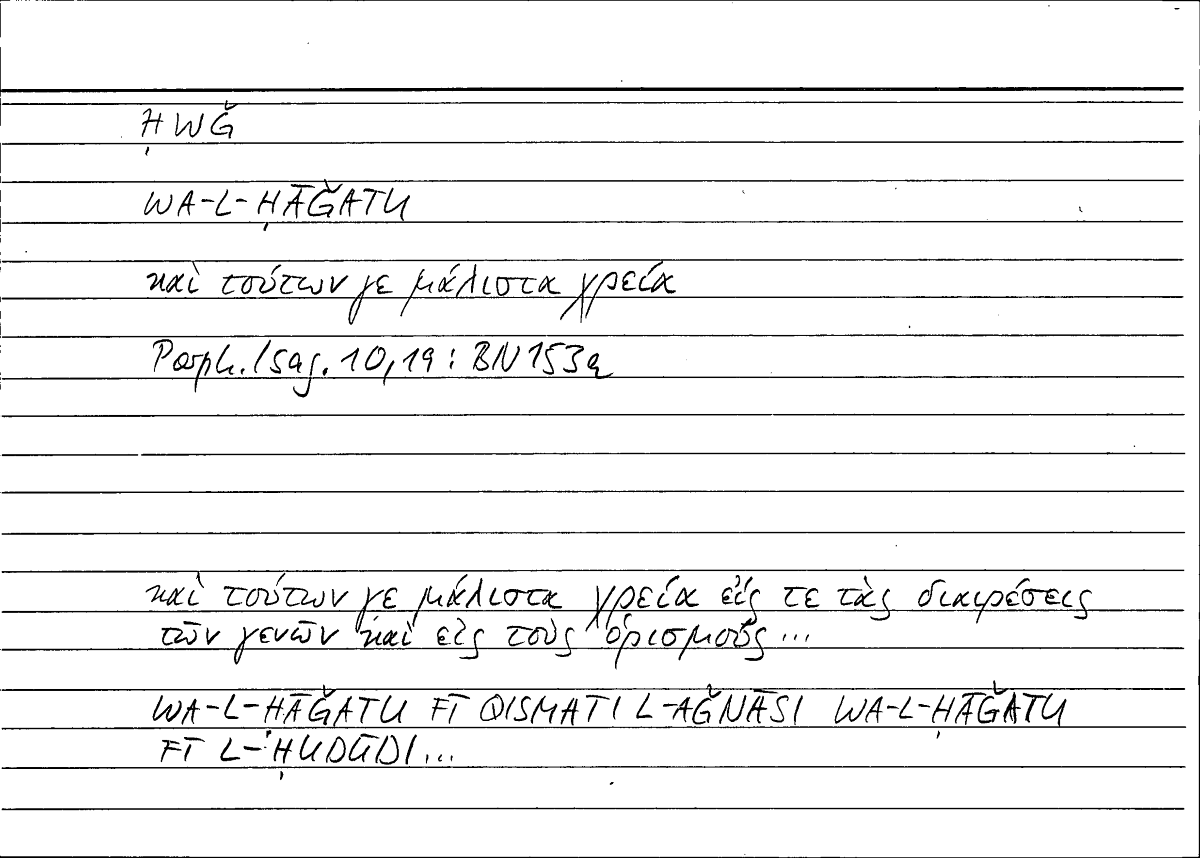 ḤWǦ
WA-L-ḤĀǦATU
καὶ τούτων γε μάλιστα χρεία
Porph. Isag. 10,19: BN 153a
καὶ τούτων γε μάλιστα χρεία εἴς τε τὰς διαιρέσεις
τῶν γενῶν καὶ εἰς τοὺς ὁρισμούς...
WA-L-ḤĀǦATU FĪ QISMATI L-AǦNĀSI WA-L-ḤĀǦATU
FĪ L-ḤUDŪDI...